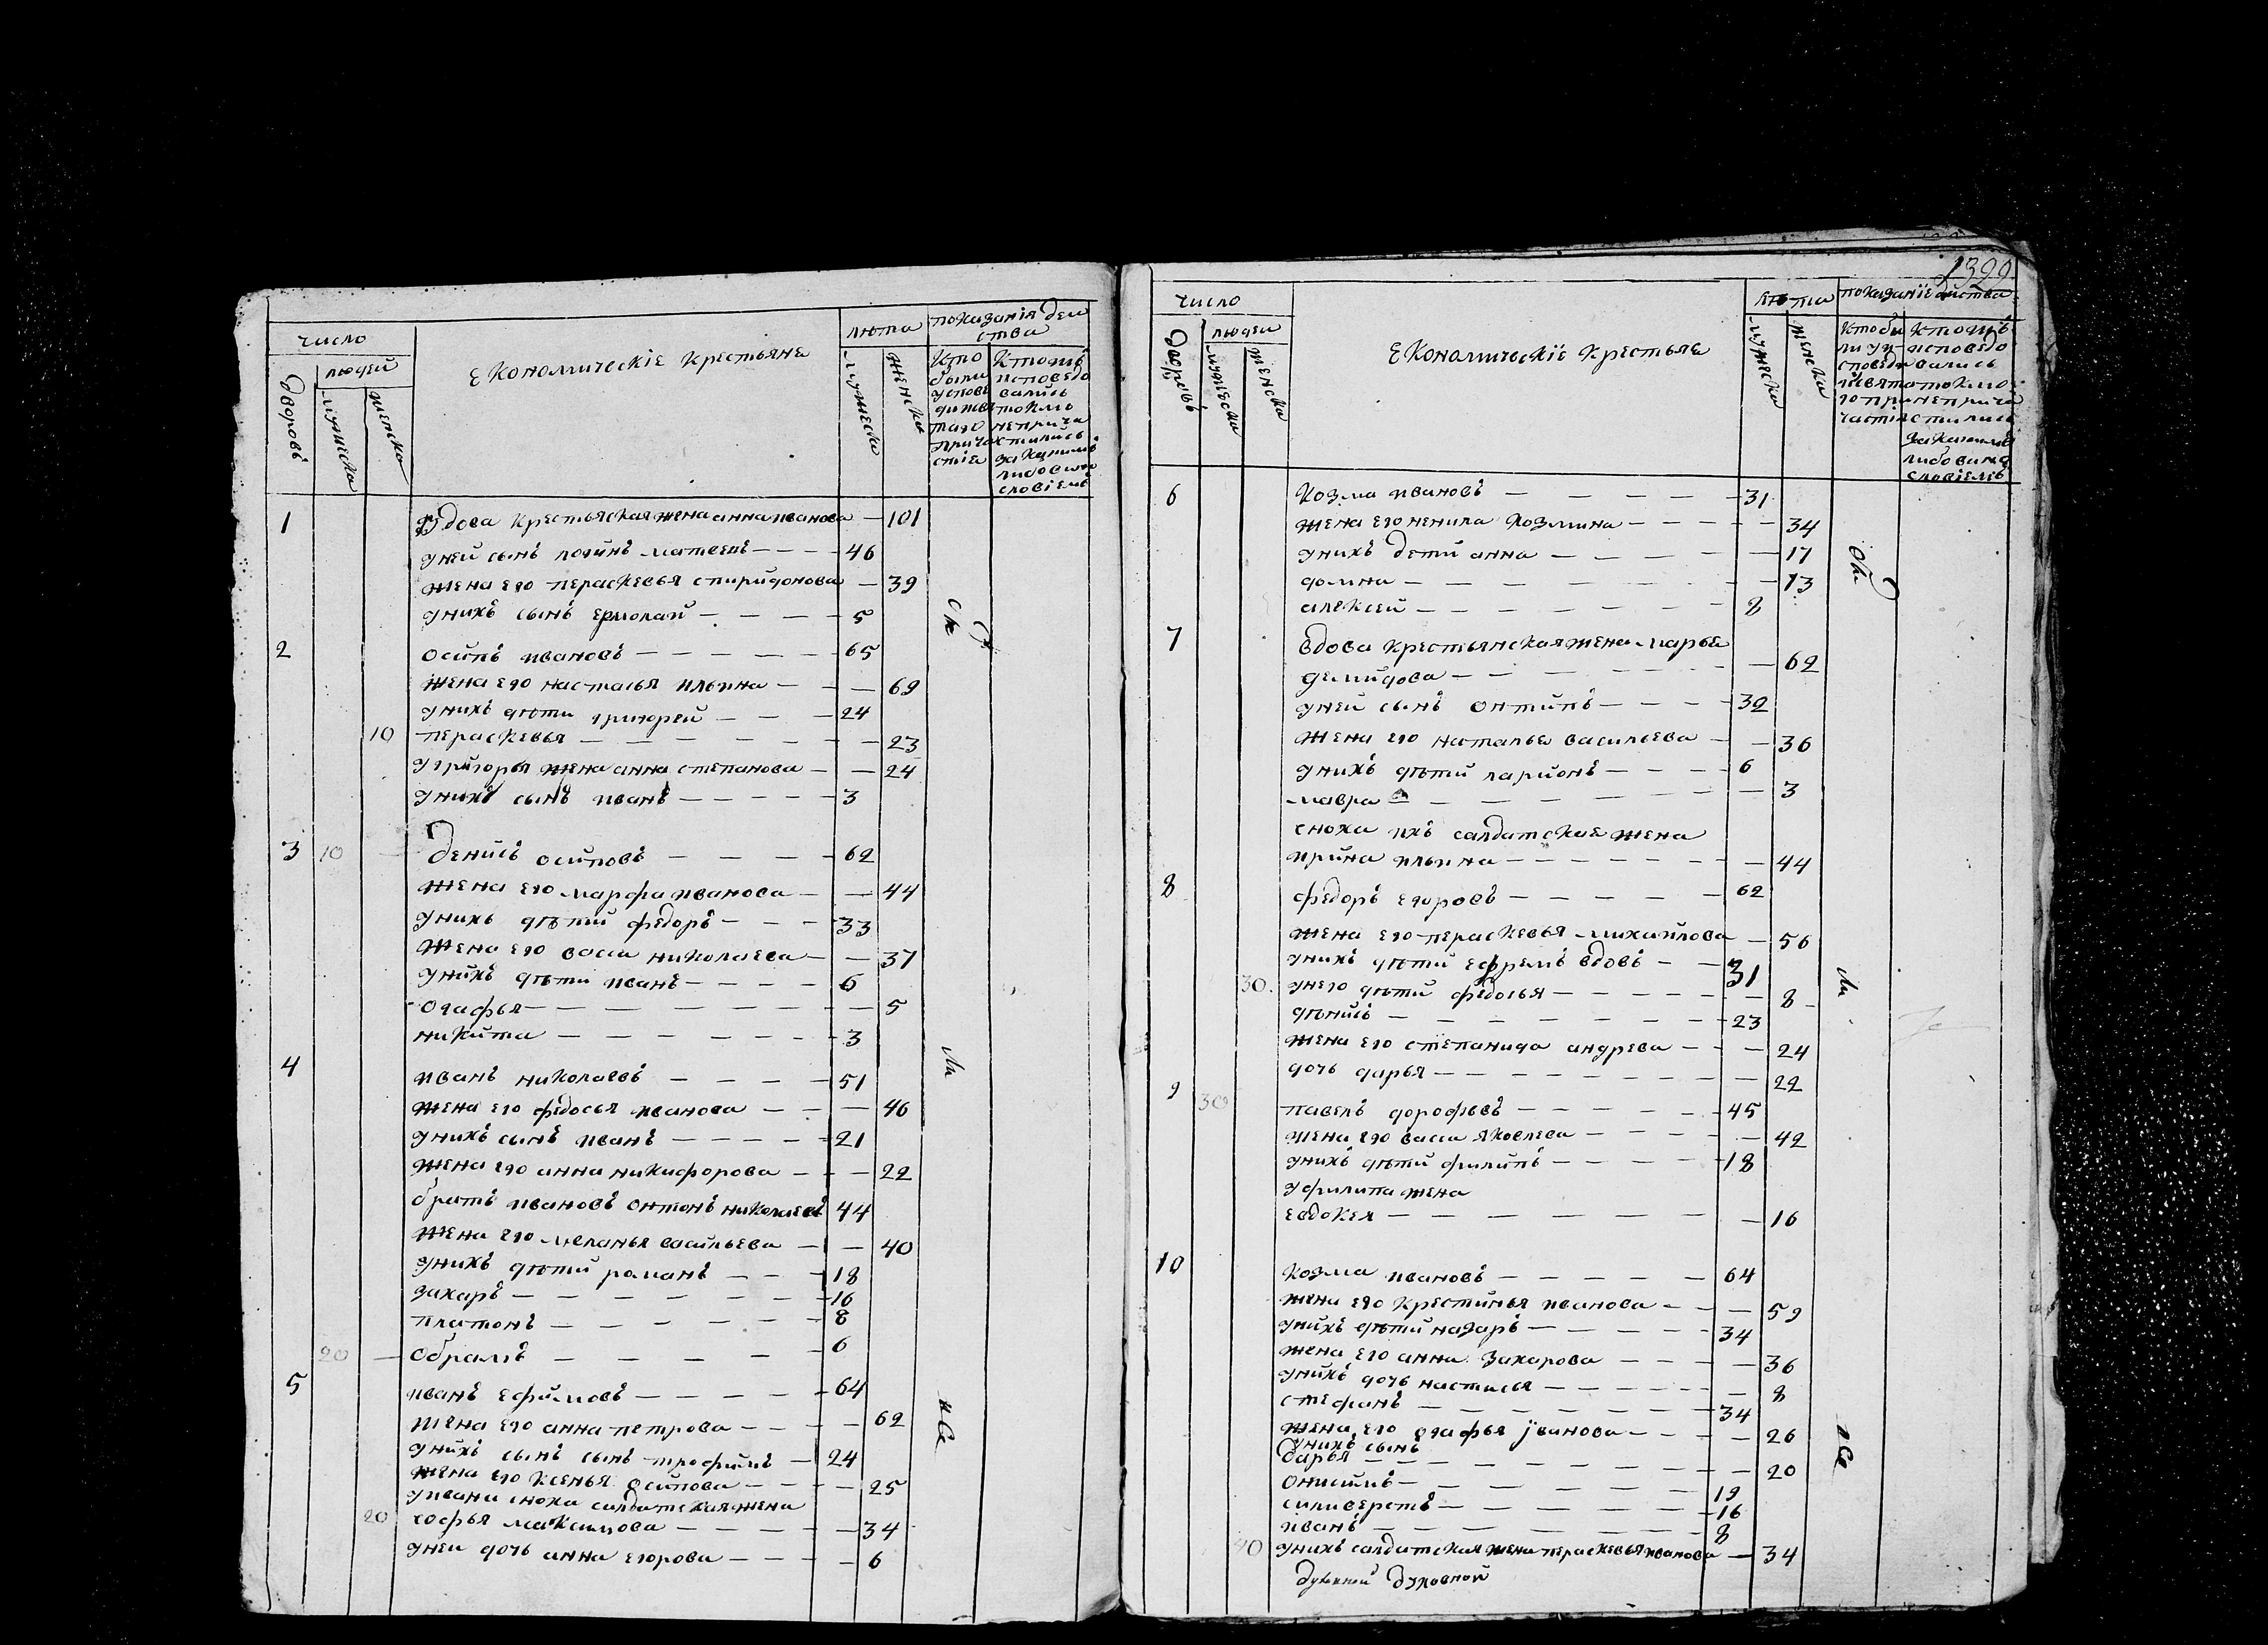 число
людей
дворовъ
мужеска
женска
Економическіе крестьяне
лѣта
мужеска
женска
показанія деи
ства
Кто
были
успове
дитвѧ
таго
прича
стіѧ
Ктошъ
исповедо
вались
токмо
неприча
стились
закацимъ
либо вина
словіемъ
1 вдова крестьяскаяжена анна иванова — 101
уней сынъ логинъ матвевъ — — — 46
жена его пераскевья спиридонова — 39
унихъ сынъ ермолай — — — — 5
2 осипъ ивановъ — — — — — 65
жена его настасья ильина — — — 69
унихъ дѣти григорей — — — 24
10 пераскевья — — — — — — — 23
угригорья жена анна степанова — — 24
унихъ сынъ иванъ — — — — — 3
3 10 денисъ осиповъ — — — — 62
жена его марфа иванова — — 44
унихъ дѣтй федоръ — — — 33
жена его васса николаева — — 37
унихъ дѣти иванъ — — — — 6
огафья — — — — — — — 5
никита — — — — — — — 3
4 иванъ николаевъ — — — — 51
жена его федосья иванова — — — 46
унихъ сынъ иванъ — — — — — 21
жена его анна никифорова — — — 22
братъ ивановъ онтонъ николаевъ 44
жена его меланья васильева — — 40
унихъ дѣтй романъ — — — 18
захаръ — — — — — — — 16
платонъ — — — — — — 8
20 — обрамъ — — — — — 6
5 иванъ ефимовъ — — — — — 64
жена его анна петрова — — — — 62
унихъ сынъ сынъ трофимъ — 24
жена его ксенья осипова — — — — 25
уивана сноха салдатскаяжена
20 софья максимова — — — — — — 34
уней дочь анна егорова — — — — — 6
1399
число
людеи
дворовъ
мужеска
женска
Економическіе крестьяне
лѣта
мужеска
женска
показаніе действа
ктобы
ли уи
споведи
исвята
го при
частіѧ
ктошъ
исповедо
вались
токмо
неприча
стились
закакимъ
либо вина
словіемъ
6 козма ивановъ — — — — — 31
жена его ненила козмина — — — — — 34
унихъ дети анна — — — — — 17
домна — — — — — — — — 13
алексей — — — — — — — 8
7 вдова крестьянскаяжена марья
демидова — — — — — — 62
уней сынъ онтипъ — — — — 32
жена его наталья васильева — — 36
унихъ дѣтй ларионъ — — — — 6
мавра — — — — — — — — 3
сноха ихъ салдатская жена
ирина ильина — — — — — — — — 44
8 федоръ егоровъ — — — — — 62
жена его пераскевья михаилова — 56
унихъ дѣтй ефремъ вдовъ — — 31
30. унего дѣтй федосья — — — — — — 8
дѣнисъ — — — — — — — — 23
жена его степанида андрева — — — 24
дочь дарья — — — — — — — — — 22
9 30 павелъ дорофѣевъ — — — — — 45
жена его васса яковлева — — — — — 42
унихъ дѣтй филипъ — — — — — 18
уфилипа жена
евдокея — — — — — — — — 16
10 козма ивановъ — — — — — 64
жена его крестинья иванова — — — 59
унихъ дѣтй назаръ — — — — — 34
жена его анна захарова — — — — 36
унихъ дочь настасья — — — — — — 8
стефанъ — — — — — — — — 34
жена его огафья јванова — — — — — 26
унихъ сынъ
дарья — — — — — — — — — — 20
онисимъ — — — — — — — 19
силиверстъ — — — — — — — 16
иванъ — — — — — — — — 8
40 унихъ салдатскаяжена пераскевья иванова — 34
духовной